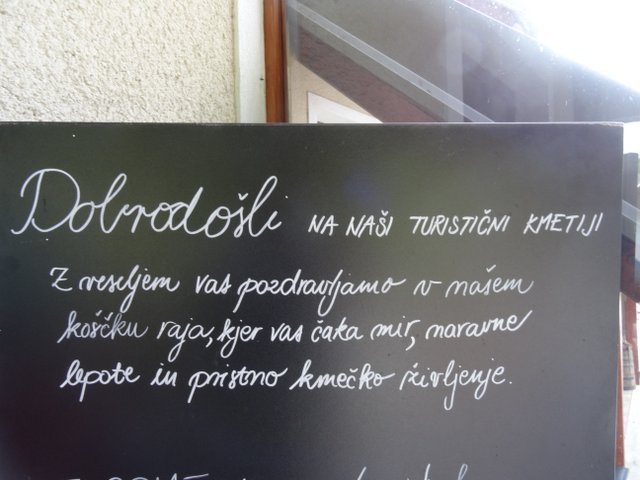 Dobrodošli NA NAŠI TURISTIČNI KMETIJI
Z veseljem vas pozdravljamo v našem
koščku raja, kjer vas čaka mir, naravne
lepote in pristno kmečko življenje.